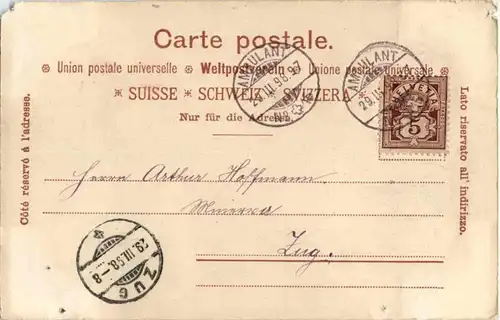 Carte postale.
Union postale universelle Weltpostverein Unione postale universale
SUISSE SCHWEIZ SVIZZERA
Nur für die Adresse.
Côté réservé à l'adresse.
Lato riservato all' indirizzo.
AMBULANT
29.III.98
AMBULANT
29.III
HELVETIA
5
Herrn Arthur Hoffmann
Minerva
Zug.
29.III.98.-8
ZUG